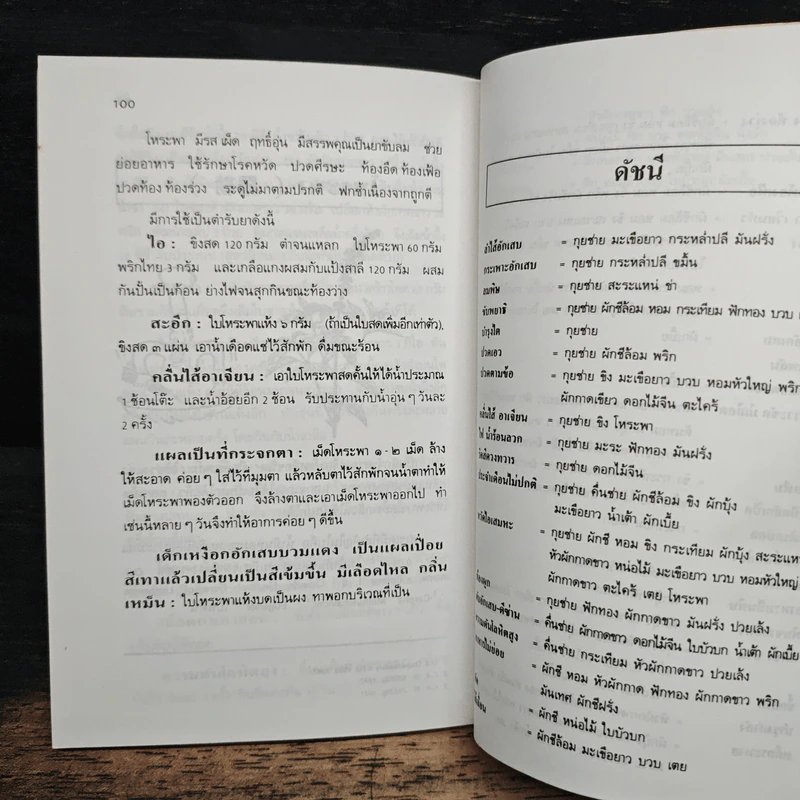 100
โหระพา มีรสเผ็ด ฤทธิ์อุ่น มีสรรพคุณเป็นยาขับลม ช่วย
ย่อยอาหาร ใช้รักษาโรคหวัด ปวดศีรษะ ท้องอืด ท้องเฟ้อ
ปวดท้อง ท้องร่วง ระดูไม่มาตามปรกติ ฟกช้ำเนื่องจากถูกตี
มีการใช้เป็นตำรับยาดังนี้
ไอ : ขิงสด 120 กรัม ตำจนแหลก ใบโหระพา 60 กรัม
พริกไทย 3 กรัม และเกลือแกงผสมกับแป้งสาลี 120 กรัม ผสม
กันปั้นเป็นก้อน ย่างไฟจนสุกกินขณะท้องว่าง
สะอึก : ใบโหระพาแห้ง ๖ กรัม (ถ้าเป็นใบสดเพิ่มอีกเท่าตัว),
ขิงสด ๓ แผ่น เอาน้ำเดือดแช่ไว้สักพัก ดื่มขณะร้อน
คลื่นไส้อาเจียน : เอาใบโหระพาสดคั้นให้ได้น้ำประมาณ
1 ช้อนโต๊ะ และน้ำอ้อยอีก 2 ช้อน รับประทานกับน้ำอุ่น ๆ วันละ
2 ครั้ง
แผลเป็นที่กระจกตา : เม็ดโหระพา ๑ - ๒ เม็ด ล้าง
ให้สะอาด ค่อย ๆ ใส่ไว้ที่มุมตา แล้วหลับตาไว้สักพักจนน้ำตาทำให้
เม็ดโหระพาพองตัวออก จึงล้างตาและเอาเม็ดโหระพาออกไป ทำ
เช่นนี้หลาย ๆ วันจึงทำให้อาการค่อย ๆ ดีขึ้น
เด็กเหงือกอักเสบบวมแดง เป็นแผลเปื่อย
สีเทาแล้วเปลี่ยนเป็นสีเข้มขึ้น มีเลือดไหล กลิ่น
เหม็น : ใบโหระพาแห้งบดเป็นผง ทาพอกบริเวณที่เป็น
ดัชนี
ลำไส้อักเสบ = กุยช่าย มะเขือยาว กระหล่ำปลี มันฝรั่ง
กระเพาะอักเสบ = กุยช่าย กระหล่ำปลี ขมิ้น
= กุยช่าย สะระแหน่ ข่า
ขับพยาธิ = กุยช่าย ผักชีล้อม หอม กระเทียม ฟักทอง บวบ
บำรุงไต = กุยช่าย
ปวดเอว = กุยช่าย ผักชีล้อม พริก
ปวดตามข้อ = กุยช่าย ขิง มะเขือยาว บวบ หอมหัวใหญ่ พริก
ผักกาดเขียว ดอกไม้จีน ตะไคร้
คลื่นไส้ อาเจียน = กุยช่าย ขิง โหระพา
ไฟ น้ำร้อนลวก = กุยช่าย มะระ ฟักทอง มันฝรั่ง
ริดสีดวงทวาร = กุยช่าย ดอกไม้จีน
ประจำเดือนไม่ปกติ = กุยช่าย คื่นช่าย ผักชีล้อม ขิง ผักบุ้ง
มะเขือยาว น้ำเต้า ผักเบี้ย
= กุยช่าย ผักชี หอม ขิง กระเทียม ผักบุ้ง สะระแห
หัวผักกาดขาว หน่อไม้ มะเขือยาว บวบ หอมหัวใหญ่
ผักกาดขาว ตะไคร้ เตย โหระพา
= กุยช่าย ฟักทอง ผักกาดขาว มันฝรั่ง ปวยเล้ง
= คื่นช่าย ผักกาดขาว ดอกไม้จีน ใบบัวบก น้ำเต้า ผักเบี้ย
ความดันโลหิตสูง = คื่นช่าย กระเทียม หัวผักกาดขาว ปวยเล้ง
= ผักชี หอม หัวผักกาด ฟักทอง ผักกาดขาว พริก
มันเทศ ผักชีฝรั่ง
= ผักชี หน่อไม้ ใบบัวบก
= ผักชีล้อม มะเขือยาว บวบ เตย